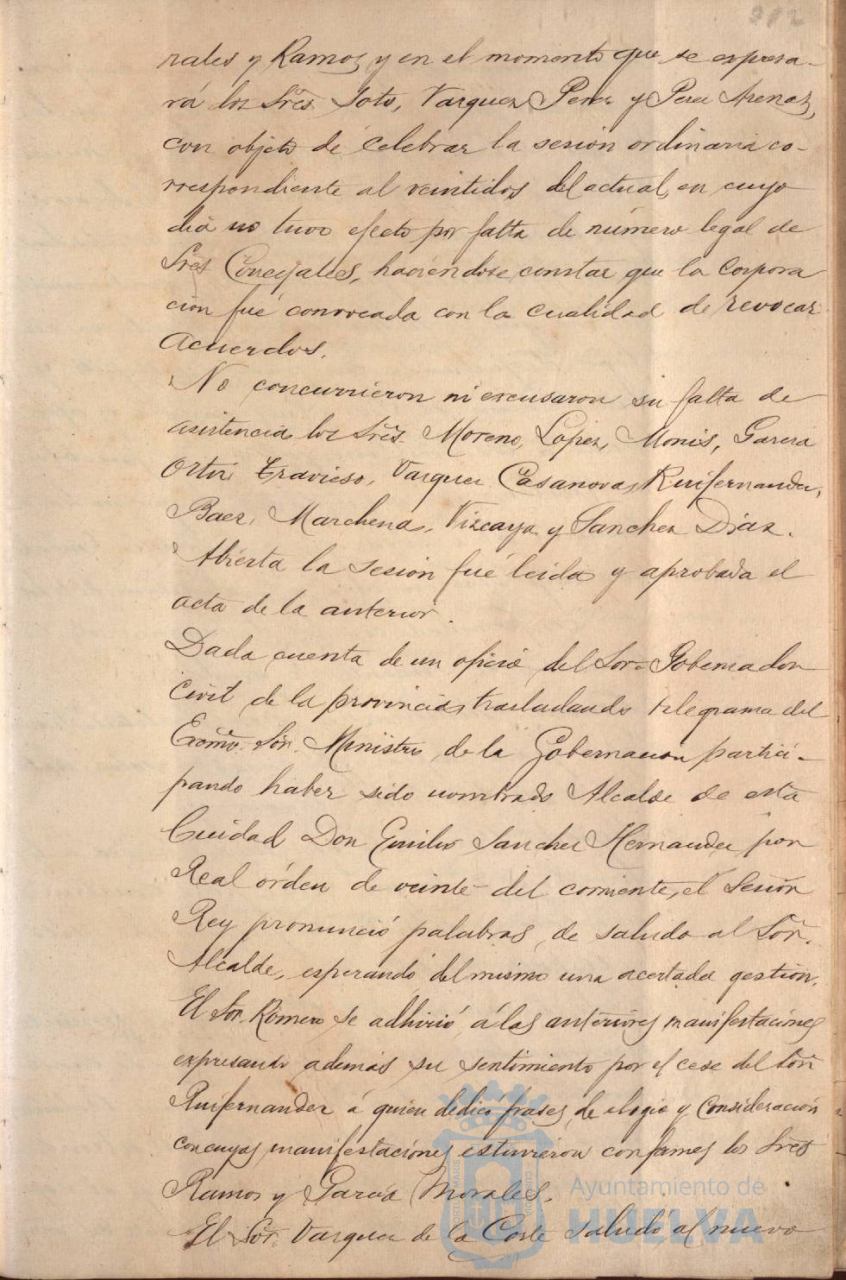 312
rales y Ramos y en el momento que se expresa-
rá los Sres. Soto, Vazquez Perez y Perez Arenas,
con objeto de celebrar la sesión ordinaria co-
rrespondiente al veintidos del actual, en cuyo
dia no tuvo efecto por falta de número legal de
Sres Concejales, haciéndose constar que la Corpora
ción fué convocada con la cualidad de revocar
acuerdos.
No concurrieron ni escusaron su falta de
asistencia los Sres. Moreno, Lopez, Monis, Garcia
Ortiz, Travieso, Vazquez Casanova, Ruifernandez,
Baez, Marchena, Vizcaya y Sanchez Diaz.
Abierta la sesión fué leida y aprobada el
acta de la anterior.
Dada cuenta de un oficio del Sor. Gobernador
Civil de la provincia, trasladando telegrama del
Excmo. Sor. Ministro de la Gobernacion partici-
pando haber sido nombrado Alcalde de esta
Cuidad Don Emilio Sanchez Hernandez por
Real órden de veinte del corriente, el Señor
Rey pronunció palabras de saludo al Sor.
Alcalde, esperando del mismo una acertada gestión.
El Sor. Romero se adhirió á las anteriores manifestaciones
expresando además su sentimiento por el cese del Sor
Ruifernandez á quien dedicó frases de elogio y consideración
con cuyas manifestaciones estuvieron conformes los Sres
Ramos y Garcia Morales.
El Sor. Vazquez de la Corte saludó al nuevo
Ayuntamiento de
HUELVA